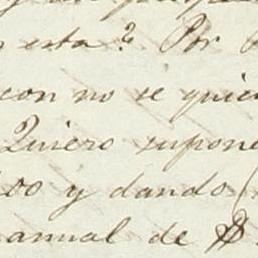 esta? Por
con no se quie
Quiero supone
00 y dando (
anual de $